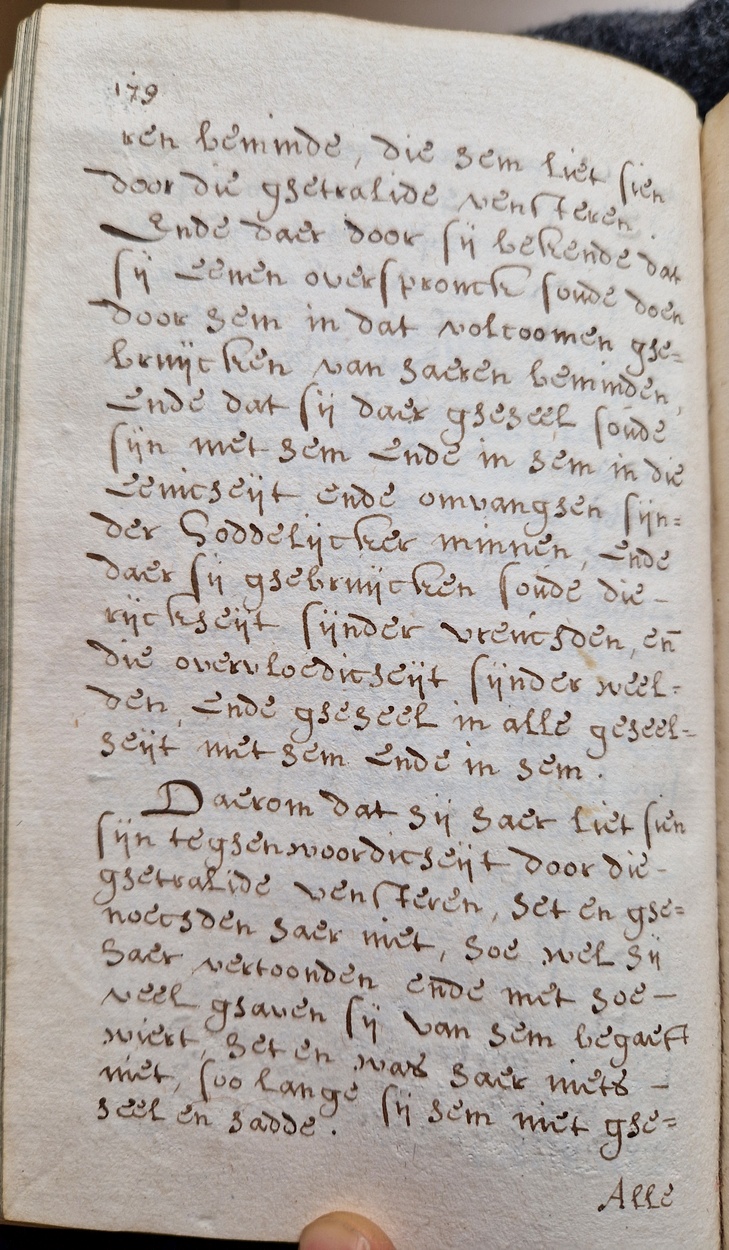 179
ren beminde, die hem liet sien
door die ghetralide vensteren.
Ende daer door sij bekende dat
sij Eenen overspronck soude doen
door hem in dat volcoomen ghe=
bruijcken van haeren beminden,
Ende dat sij daer gheheel soude
sijn met hem Ende in hem in die
Eenicheijt ende omvanghen sijn=
der Goddelijcker minnen, Ende
daer sij ghebruijcken soude die-
rijckheijt sijnder vreuchden, en̄
die overvloedicheijt sijnder weel=
den, Ende gheheel in alle geheel=
heijt met hem Ende in hem.
Daerom dat hij haer liet sien
sijn teghenwoordicheijt door die-
ghetralide vensteren, het en ghe=
noechden haer niet, hoe wel hij
haer vertoonden ende met hoe-
veel ghaven sij van hem begaeft
wiert, het en was haer niets -
niet, soo lange sij hem niet ghe=
heel en hadde.
Alle